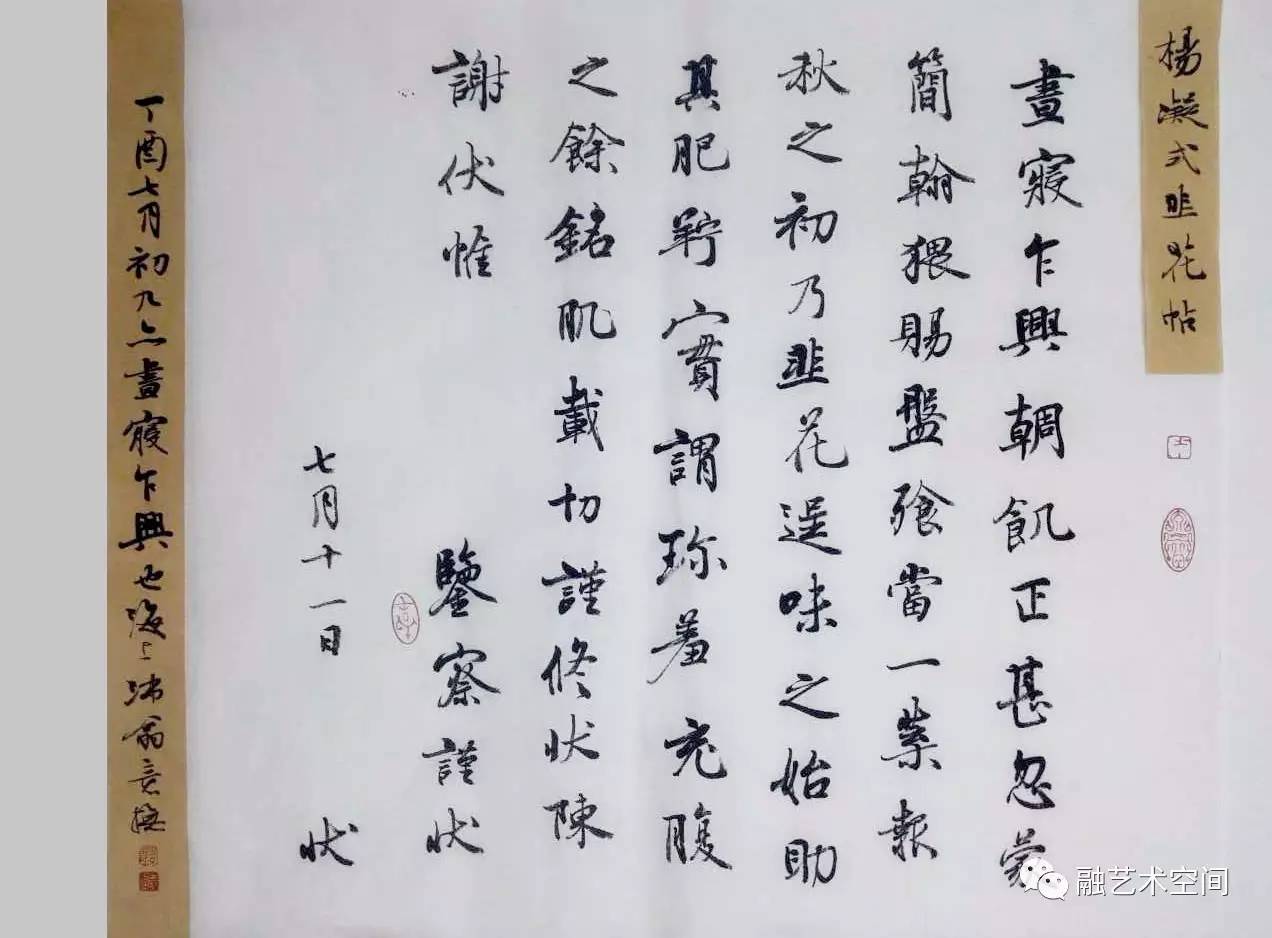 楊凝式韭花帖
晝寢乍興輖飢正甚忽蒙
簡翰猥賜盤飧當一葉報
秋之初乃韭花逞味之始助
其肥羜實謂珍羞充腹
之餘銘肌載切謹修状陳
謝伏惟 鑒察謹状
七月十一日 状
丁酉七月初九亦晝寢乍興也海上沛翁意橅
融艺术空间